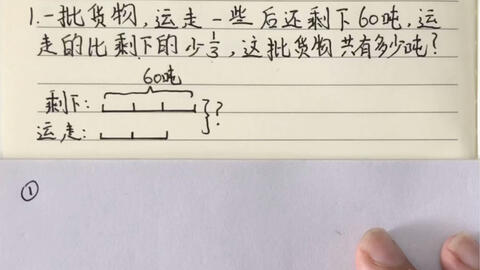 1.一批货物,运走一些后还剩下60吨,运
走的比剩下的少1/3,这批货物共有多少吨?
60吨
剩下:
?
运走:
①